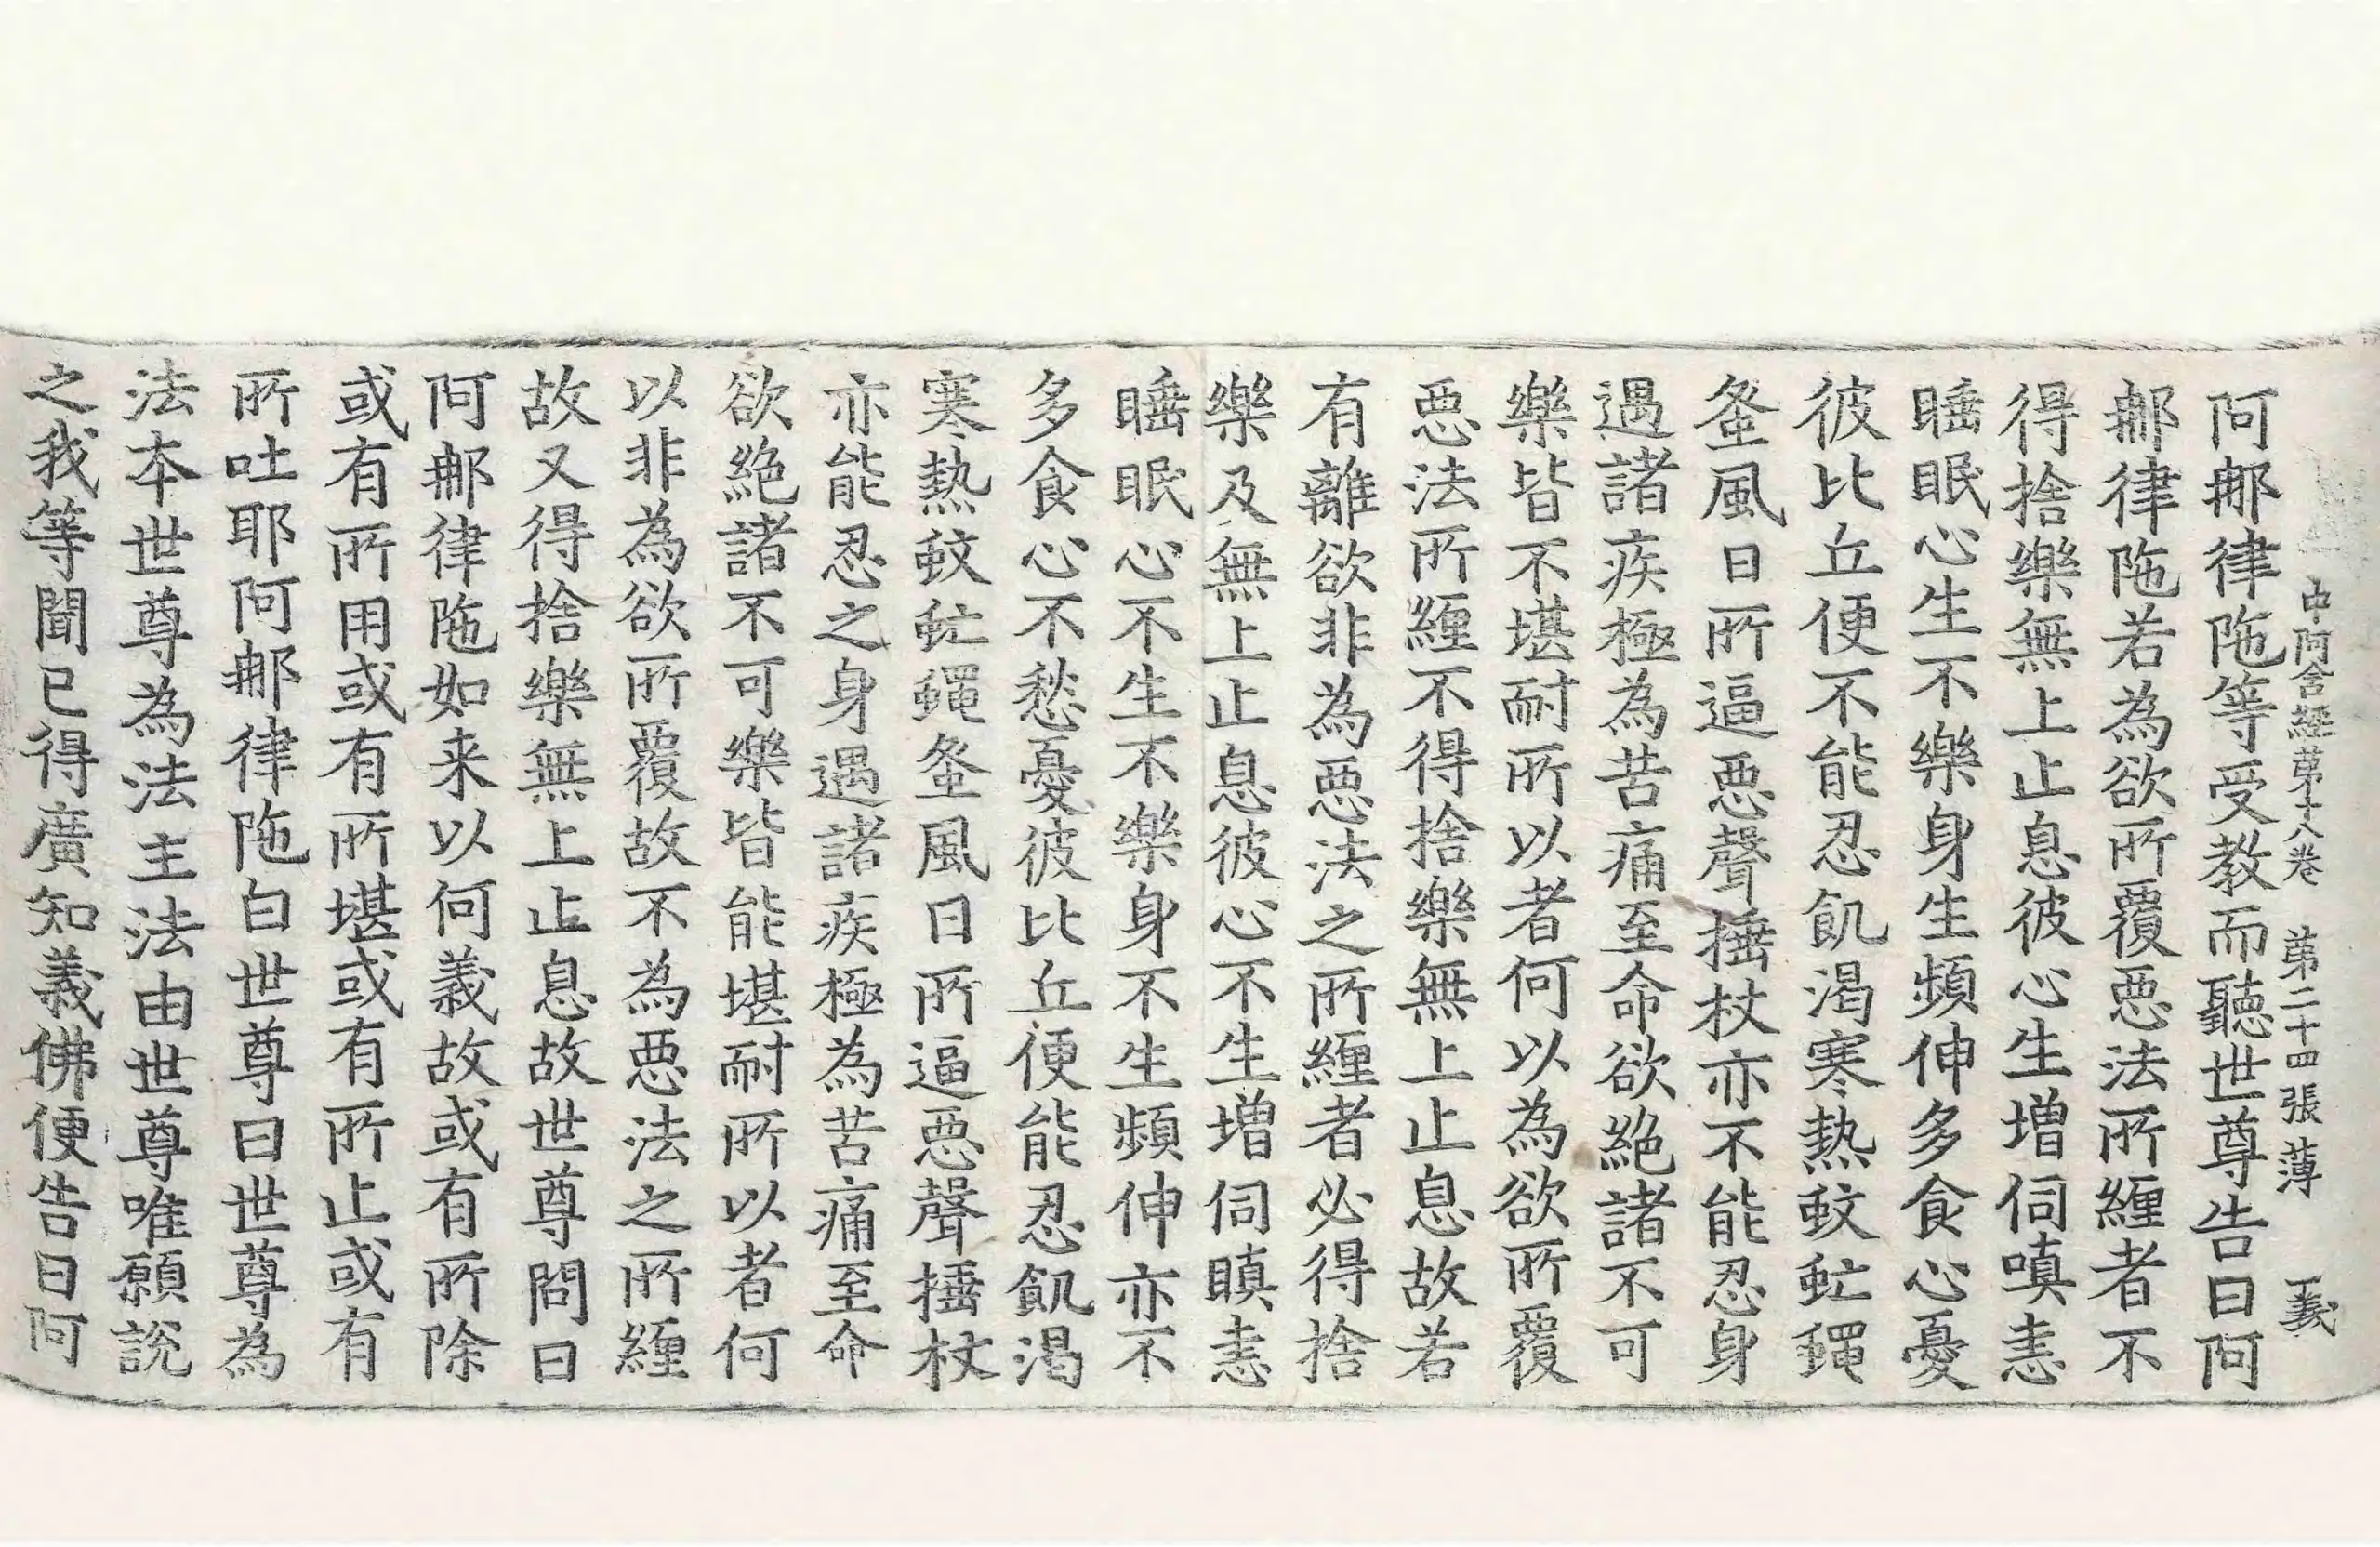 中阿含經第十八卷　第二十四張　薄　義
阿那律陁等受教而聽世尊告曰阿
那律陁若為欲所覆惡法所纏者不
得捨樂無上止息彼心生增伺嗔恚
睡眠心生不樂身生頻伸多食心憂
彼比丘便不能忍飢渴寒熱蚊虻蠅
蚤風日所逼惡聲捶杖亦不能忍身
遇諸疾極為苦痛至命欲絶諸不可
樂皆不堪耐所以者何以為欲所覆
惡法所纏不得捨樂無上止息故若
有離欲非為惡法之所纏者必得捨
樂及無上止息彼心不生增伺瞋恚
睡眠心不生不樂身不生頻伸亦不
多食心不愁憂彼比丘便能忍飢渴
寒熱蚊虻蠅蚤風日所逼惡聲捶杖
亦能忍之身遇諸疾極為苦痛至命
欲絶諸不可樂皆能堪耐所以者何
以非為欲所覆故不為惡法之所纏
故又得捨樂無上止息故世尊問曰
阿那律陁如来以何義故或有所除
或有所用或有所堪或有所止或有
所吐耶阿那律陁白世尊曰世尊為
法本世尊為法主法由世尊唯願說
之我等聞已得廣知義佛便告曰阿